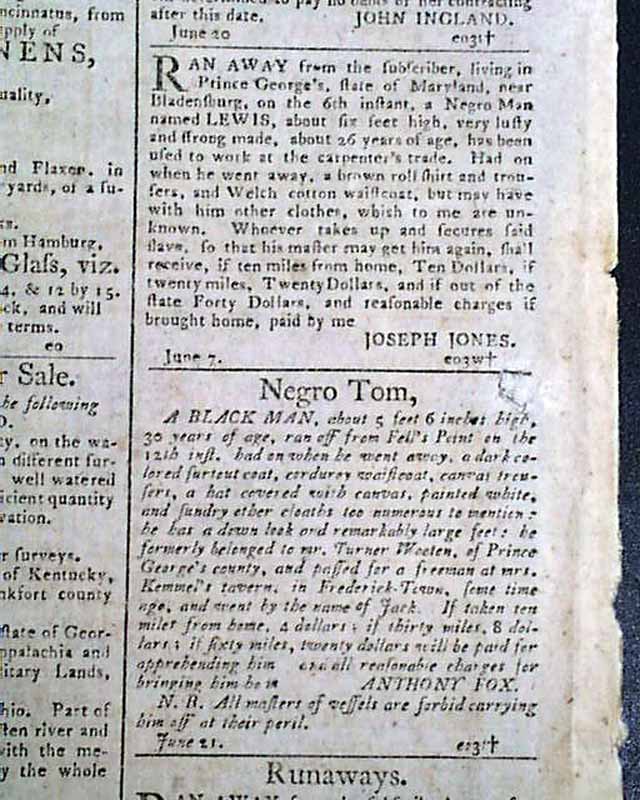 ncinnatus, from
pply of
NENS,
uality,
nd Flaxen. in
yards, of a fu-
m Hamburg,
Glaſs, viz.
4. & 12 by 15.
ck, and will
terms.
eo
r Sale.
he following
y, on the wa-
n different ſur-
well watered
ficient quantity
vation.
r ſurveys.
of Kentucky,
nkfort county
ſtate of Geor-
ppalachia and
litary Lands,
hio. Part of
ſten river and
with the me-
y the whole
after this date.
JOHN INGLAND.
June 20
eo3t†
RAN AWAY from the ſubſcriber, living in
Prince George's, ſtate of Maryland, near
Bladenſburg, on the 6th inſtant, a Negro Man
named LEWIS, about ſix feet high, very luſty
and ſtrong made, about 26 years of age, has been
uſed to work at the carpenter's trade. Had on
when he went away, a brown roll ſhirt and trou-
ſers, and Welch cotton waiſtcoat, but may have
with him other clothes, which to me are un-
known. Whoever takes up and ſecures ſaid
ſlave, ſo that his maſter may get him again, ſhall
receive, if ten miles from home, Ten Dollars, if
twenty miles, Twenty Dollars, and if out of the
ſtate Forty Dollars, and reaſonable charges if
brought home, paid by me
JOSEPH JONES.
June 7.
eo3w†
Negro Tom,
A BLACK MAN, about 5 feet 6 inches high,
30 years of age, ran off from Fell's Point on the
12th inſt. had on when he went away, a dark co-
lored ſurtout coat, corduroy waiſtcoat, canvas trou-
ſers, a hat covered with canvas, painted white,
and ſundry other cloaths too numerous to mention:
he has a down look and remarkably large feet: he
formerly belonged to mr. Turner Wooten, of Prince
George's county, and paſſed for a freeman at mrs.
Kemmel's tavern, in Frederick-Town, ſome time
ago, and went by the name of Jack. If taken ten
miles from home, 4 dollars; if thirty miles, 8 dol-
lars; if ſixty miles, twenty dollars will be paid for
apprehending him and all reaſonable charges for
bringing him
ANTHONY FOX.
N. B. All maſters of veſſels are forbid carrying
him off at their peril.
June 21.
eo3t†
Runaways.